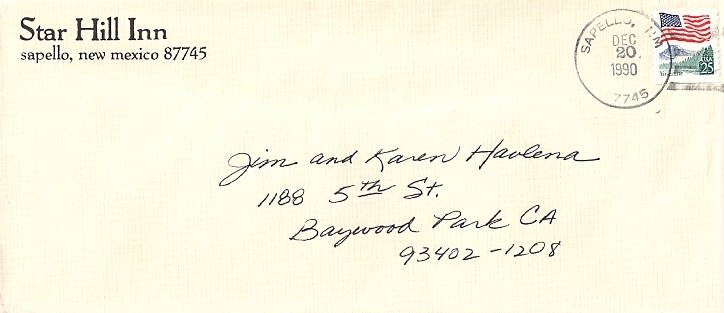 Star Hill Inn
sapello, new mexico 87745
SAPELLO, N.M
DEC
20
1990
7745
USA
25
Jim and Karen Havlena
1188 5th St.
Baywood Park CA
93402-1208